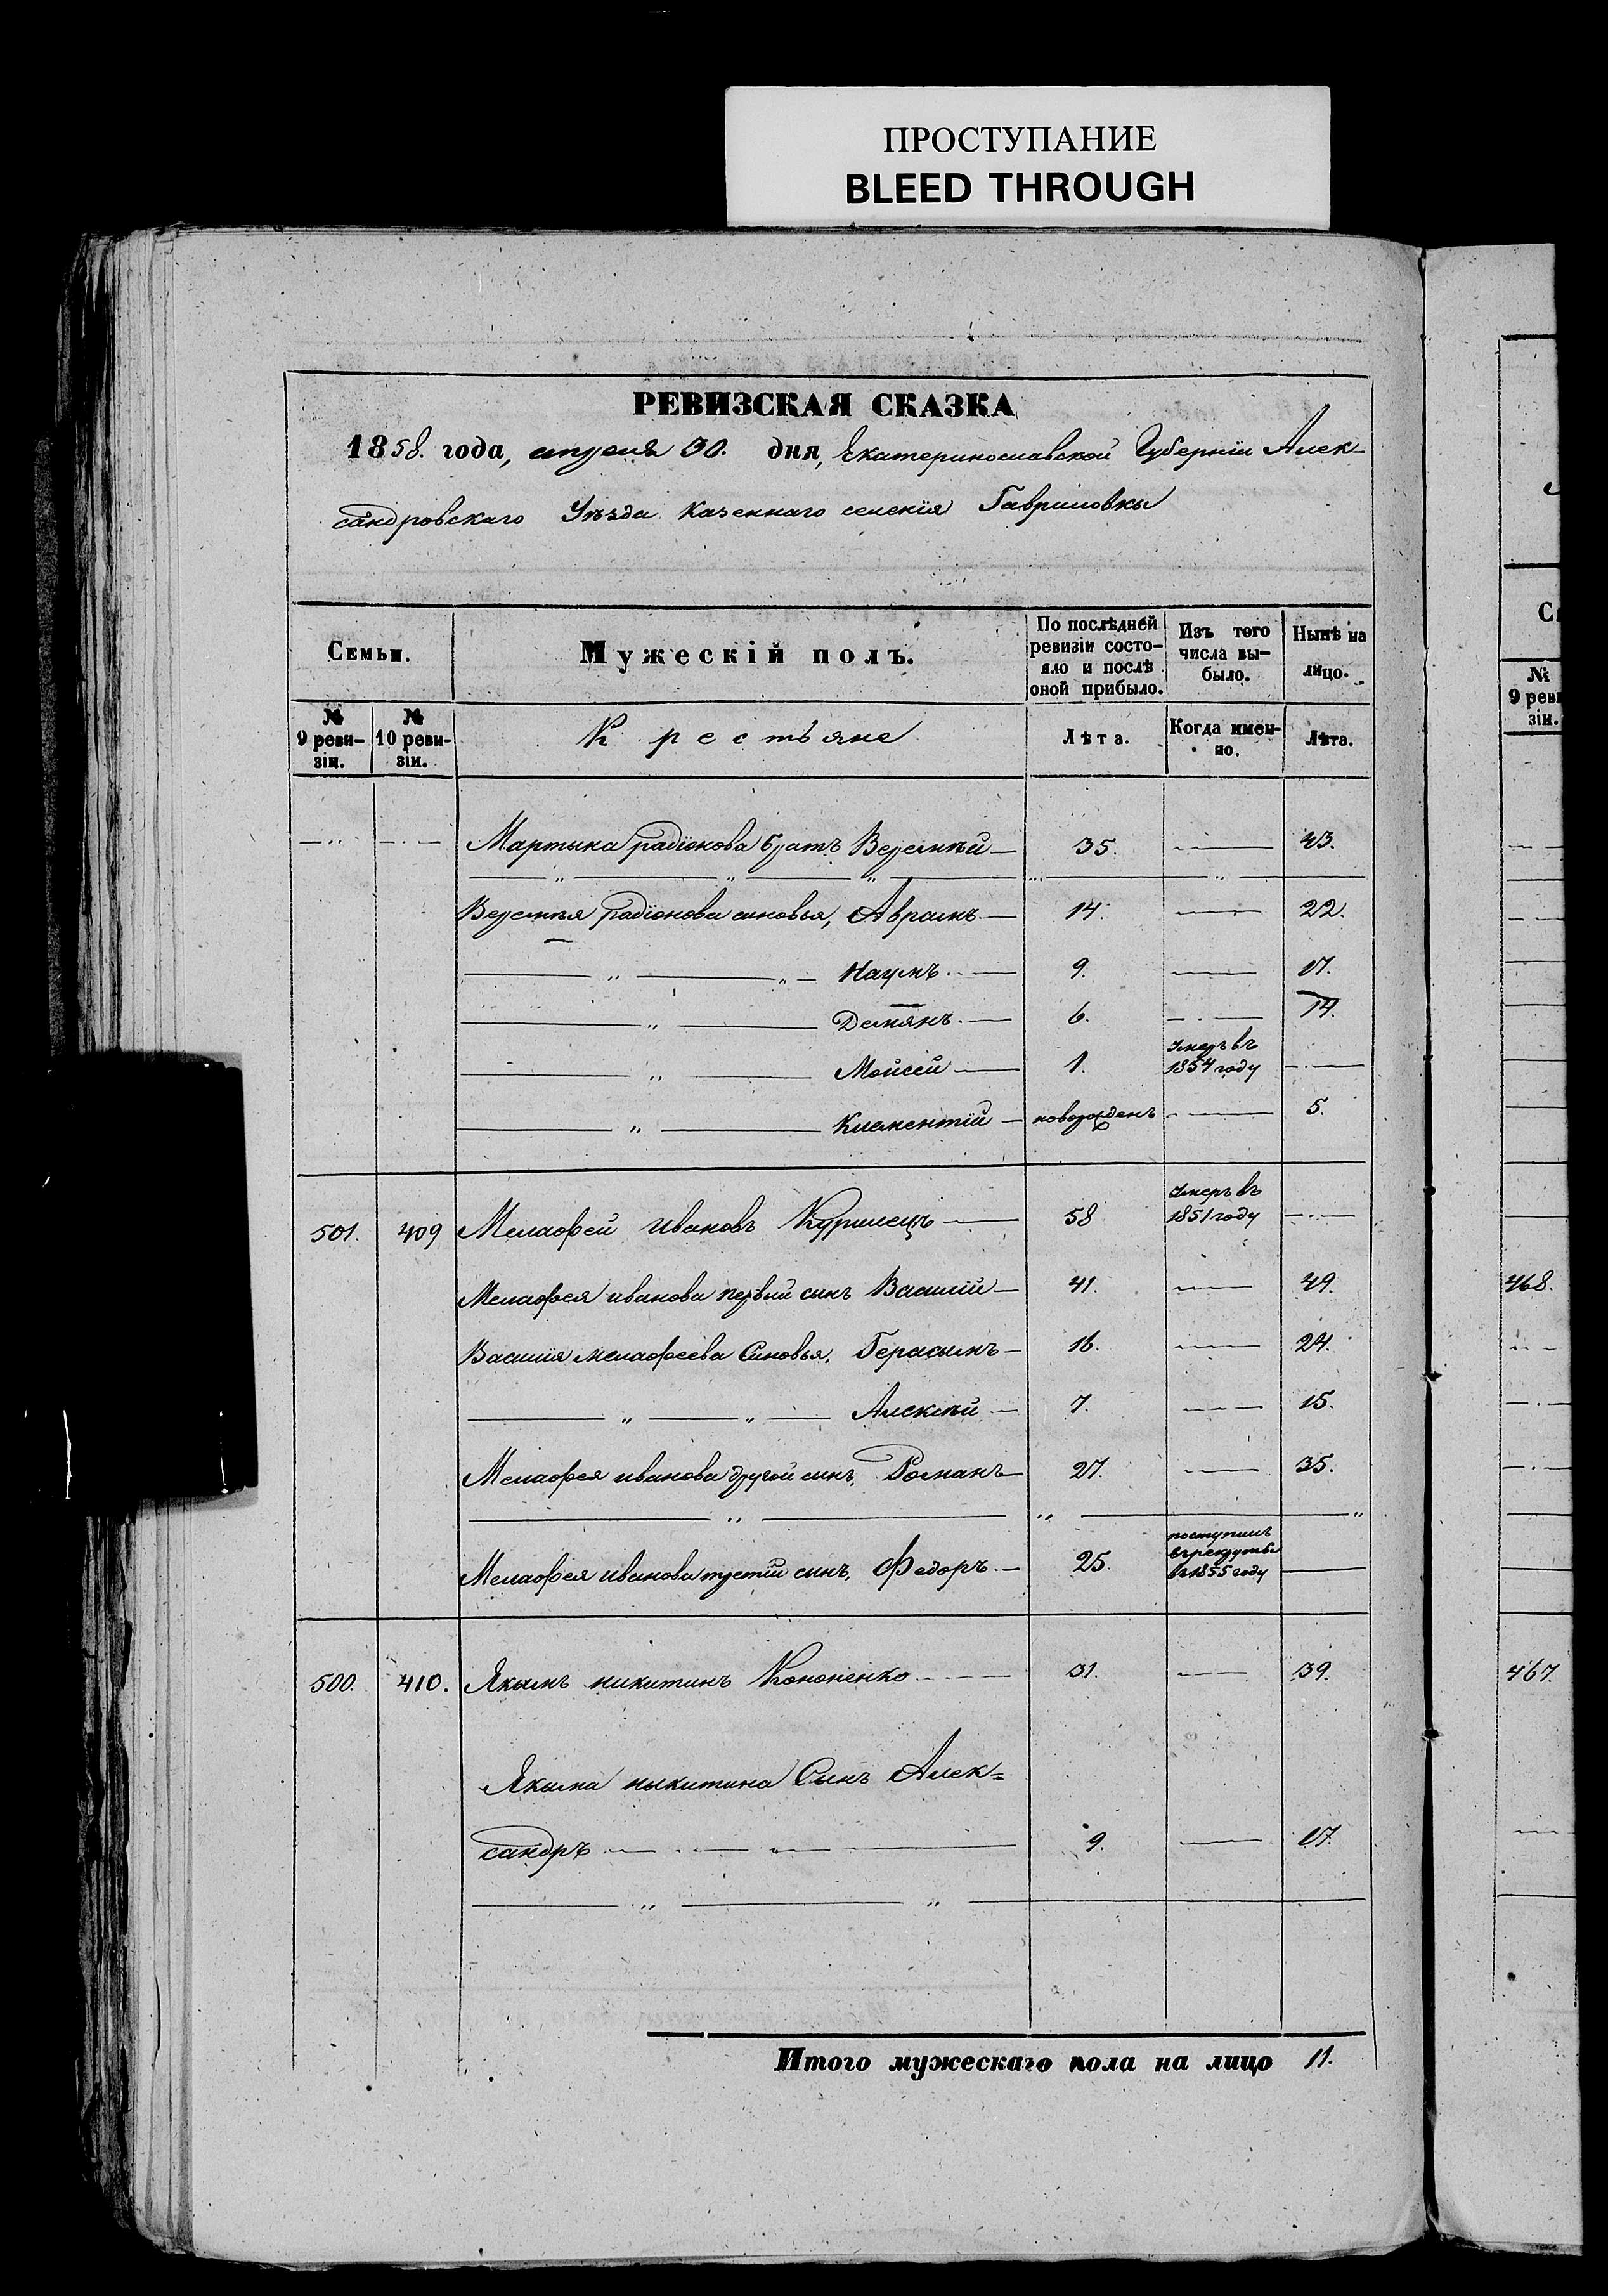 ПРОСТУПАНИЕ
BLEED THROUGH
РЕВИЗСКАЯ СКАЗКА
1858. года, апреля 30. дня, Екатеринославской Губерніи Алек-
сандровскаго Уѣзда казеннаго селенія Гавриловки
Семьи. Мужескій полъ. По послѣдней ревизіи состояло и послѣ оной прибыло. Изъ того числа выбыло. Нынѣ на лицо.
№ 9 ревизіи. № 10 ревизіи. Крестьяне Лѣта. Когда именно. Лѣта.
Мартына радіонова братъ Веремѣй 35. 43.
Веремѣя радіонова сыновья, Аврамъ 14. 22.
Наумъ 9. 17.
Демянъ 6. 14.
Мойсей 1. умеръ въ 1854 году
Климентій новорожденъ 5.
501. 409 Мелафей ивановъ Курилецъ 58 умеръ въ 1851 году
Мелафея иванова первый сынъ Василій 41. 49.
Василія мелафеева Сыновья, Герасымъ 16. 24.
Алексѣй 7. 15.
Мелафея иванова другой сынъ, Романъ 27. 35.
Мелафея иванова третій сынъ, Федоръ 25. поступилъ въ рекруты въ 1855 году
500. 410. Якымъ никитинъ Кононенко 31. 39.
Якыма ныкитина Сынъ Алек=
сандръ 9. 17.
Итого мужескаго пола на лицо 11.
№
9 реви
зіи.
468.
467.